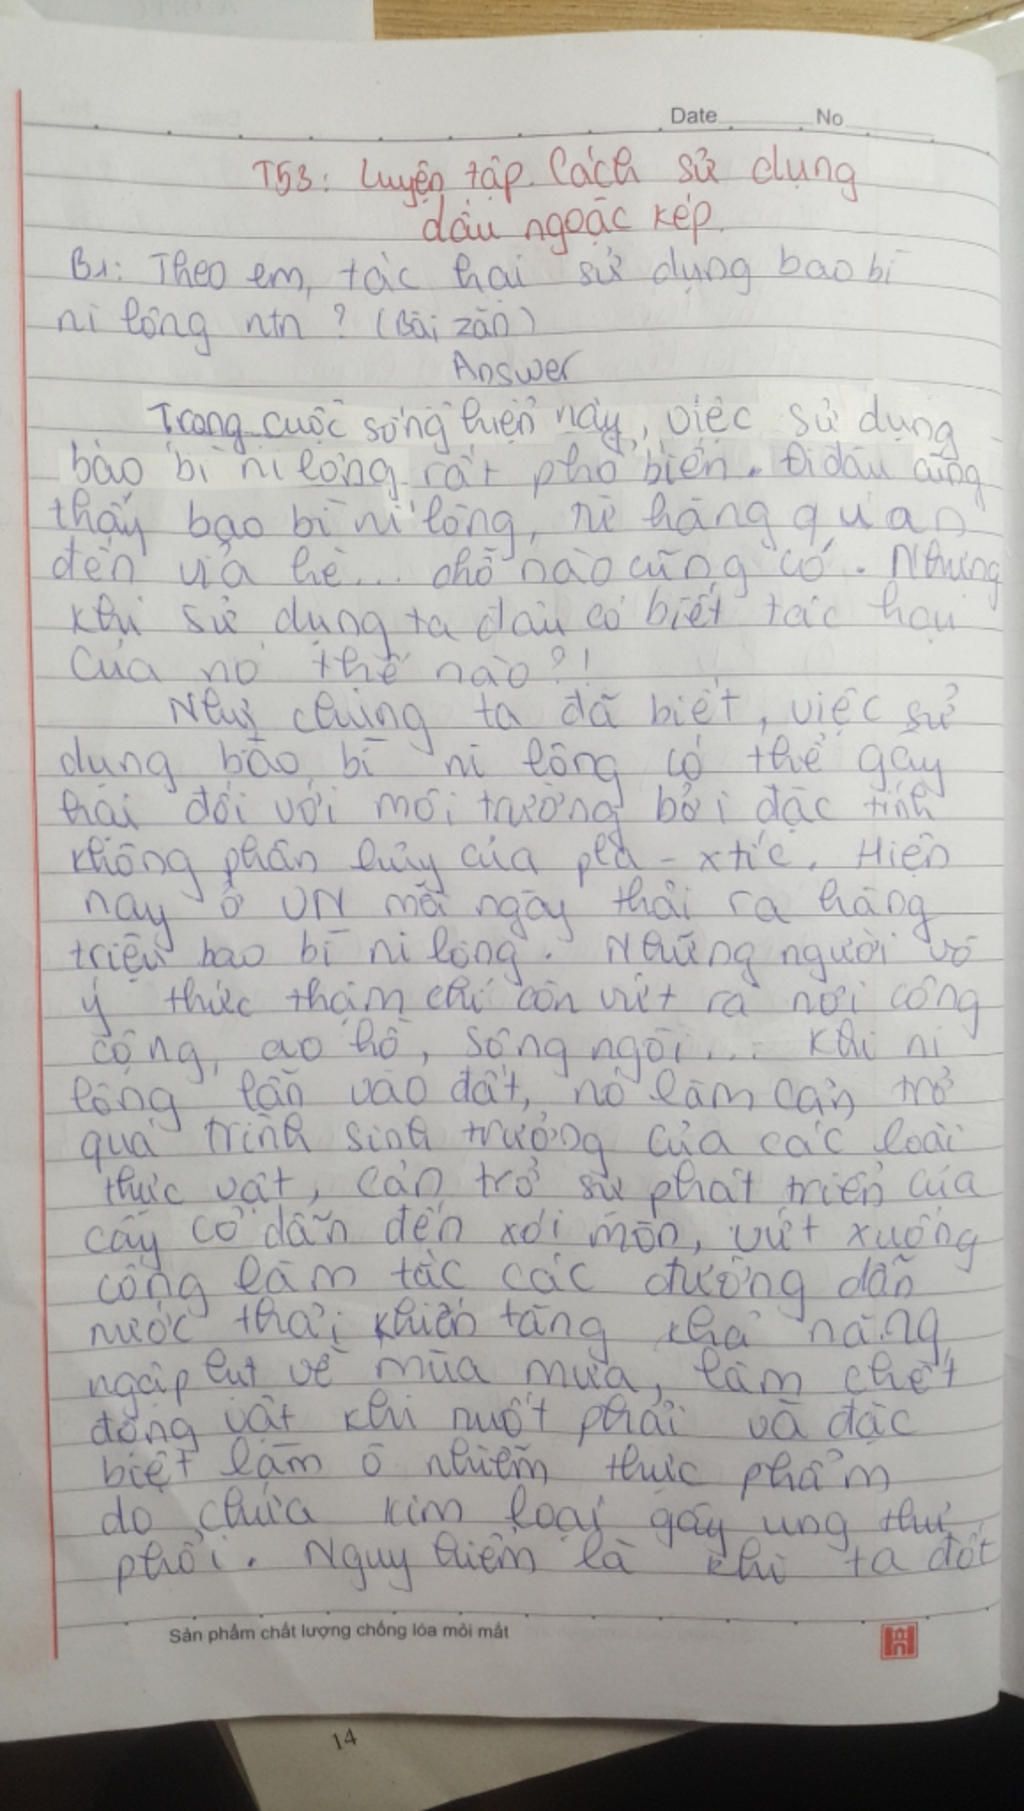 Date No
T53: Luyện tập. Cách sử dụng
dấu ngoặc kép.
B1: Theo em, tác hại sử dụng bao bì
ni lông ntn? (Bài zăn)
Answer
Trong cuộc sống hiện nay, việc sử dụng
bao bì ni lông rất phổ biến. Đi đâu cũng
thấy bao bì ni lông, từ hàng quán
đến vỉa hè... chỗ nào cũng có. Nhưng
khi sử dụng ta đâu có biết tác hại
của nó thế nào?!
Như chúng ta đã biết, việc sử
dụng bao bì ni lông có thể gây
hại đối với môi trường bởi đặc tính
không phân hủy của pla-xtic. Hiện
nay ở VN mỗi ngày thải ra hàng
triệu bao bì ni lông. Những người vô
ý thức thậm chí còn vứt ra nơi công
cộng, ao hồ, sông ngòi... Khi ni
lông lẫn vào đất, nó làm cản trở
quá trình sinh trưởng của các loài
thực vật, cản trở sự phát triển của
cây cỏ dẫn đến xói mòn, vứt xuống
cống làm tắc các đường dẫn
nước thải khiến tăng khả năng
ngập lụt về mùa mưa, làm chết
động vật khi nuốt phải và đặc
biệt làm ô nhiễm thực phẩm
do chứa kim loại gây ung thư
phổi. Nguy hiểm là khi ta đốt
Sản phẩm chất lượng chống lóa mỏi mắt
14